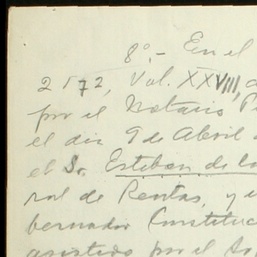 8º.- En el
2172, Vol. XXVIII,
por el Notario
el día 9 de Abril
el Sr. Esteban de
ral de Rentas, y
bernador Constituc
asistido por el